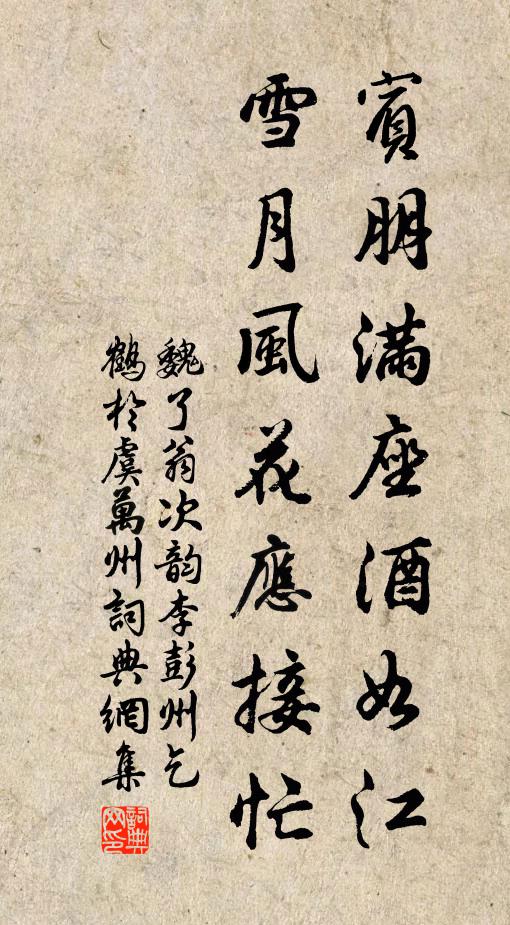 賓朋滿座酒如江
雪月風花應接忙
魏了翁次韵李彭州乞
鶴於虞萬州詞典網集
詞典网印